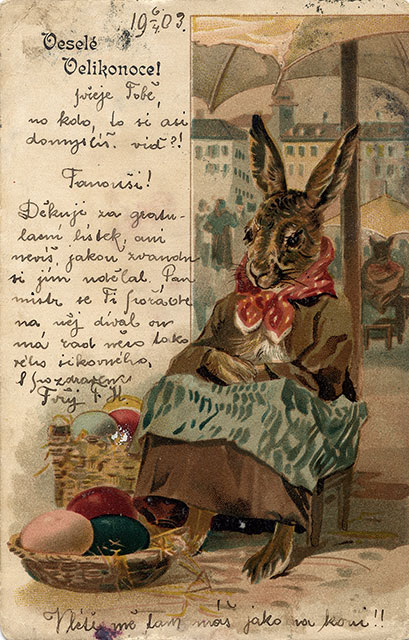 19 6/4 03.
Veselé
Velikonoce!
přeje Tobě,
no kdo, to si asi
domyslíš. viď?!
Fanouši!
Děkuji za gratu-
lační lístek, ani
nevíš, jakou
si jím udělal. Pan
mistr se Ti
na něj díval on
má rád něco tako
vého šikovného,
S pozdravem
mě tam máš jako na koni!!